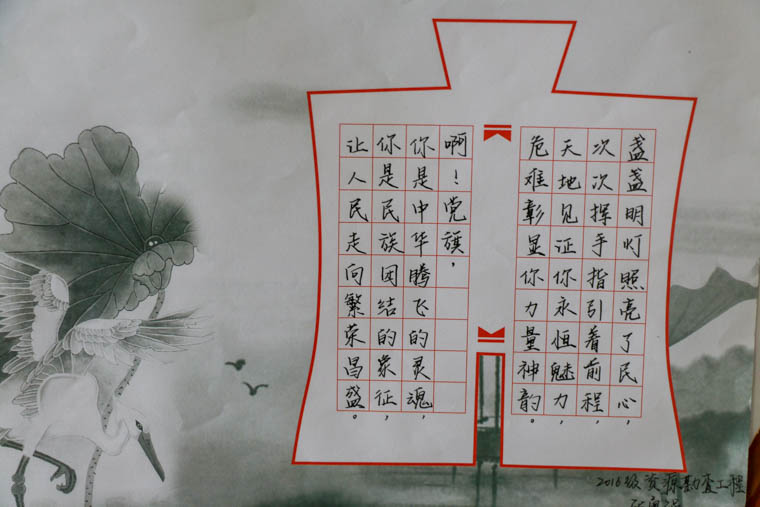 盏盏明灯照亮了民心，
次次挥手指引着前程，
天地见证你永恒魅力，
危难彰显你力量神韵。
啊！党旗，
你是中华腾飞的灵魂，
你是民族团结的象征，
让人民走向繁荣昌盛。
2016级资源勘查工程